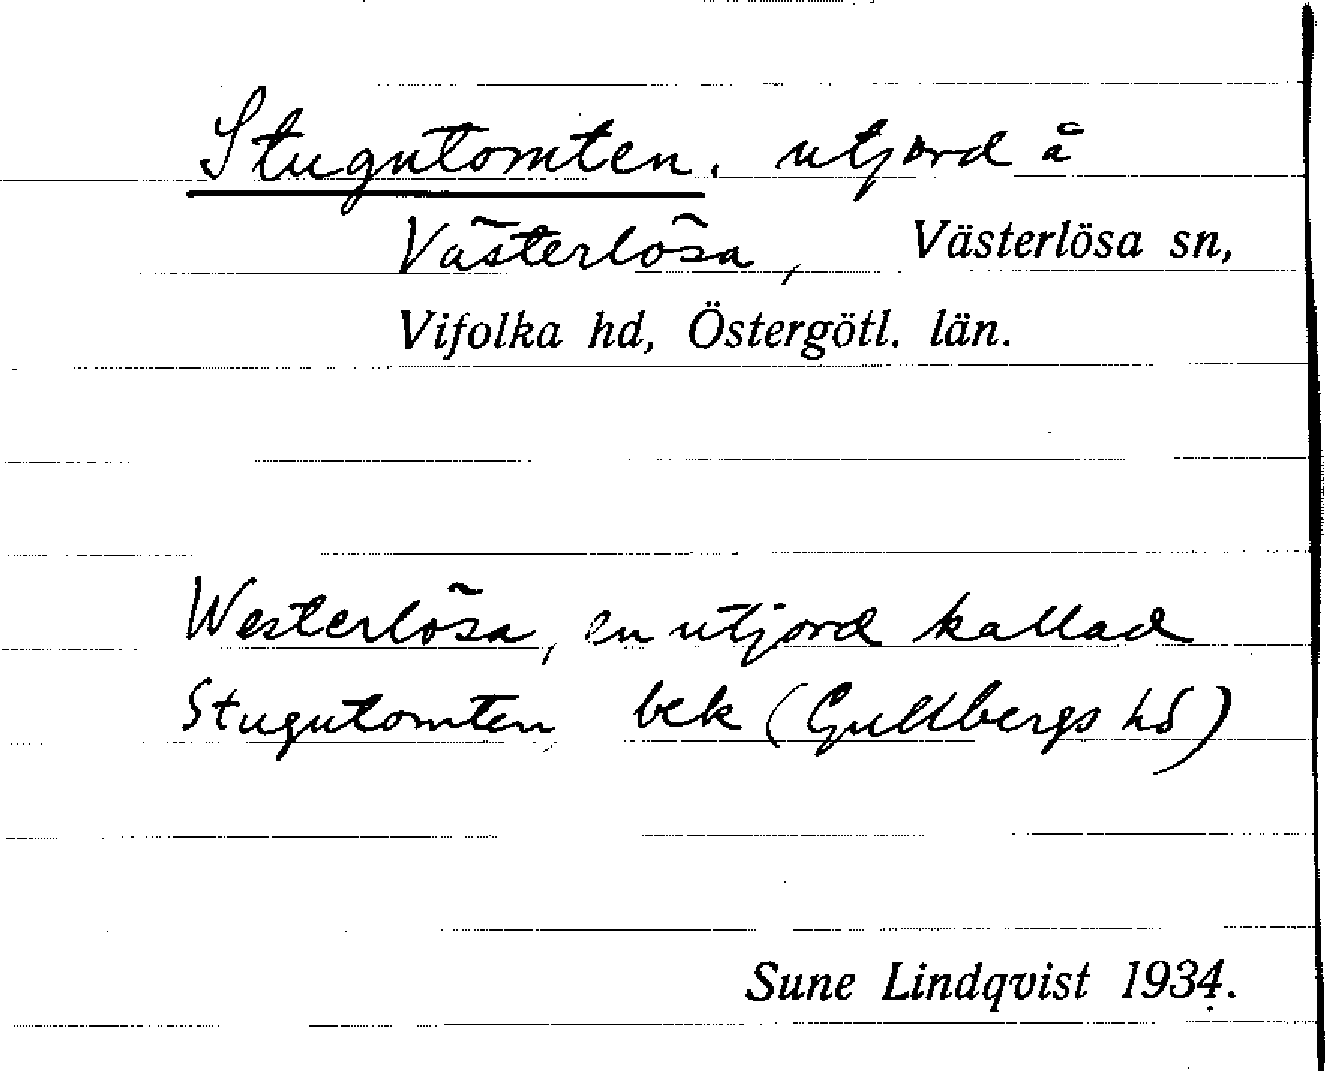 Stugutomten, utjord å
Västerlösa, Västerlösa sn,
Vifolka hd, Östergötl. län.
Westerlösa, en utjord kallad
Stugutomten, bek (Gullbergs hd)
Sune Lindqvist 1934.